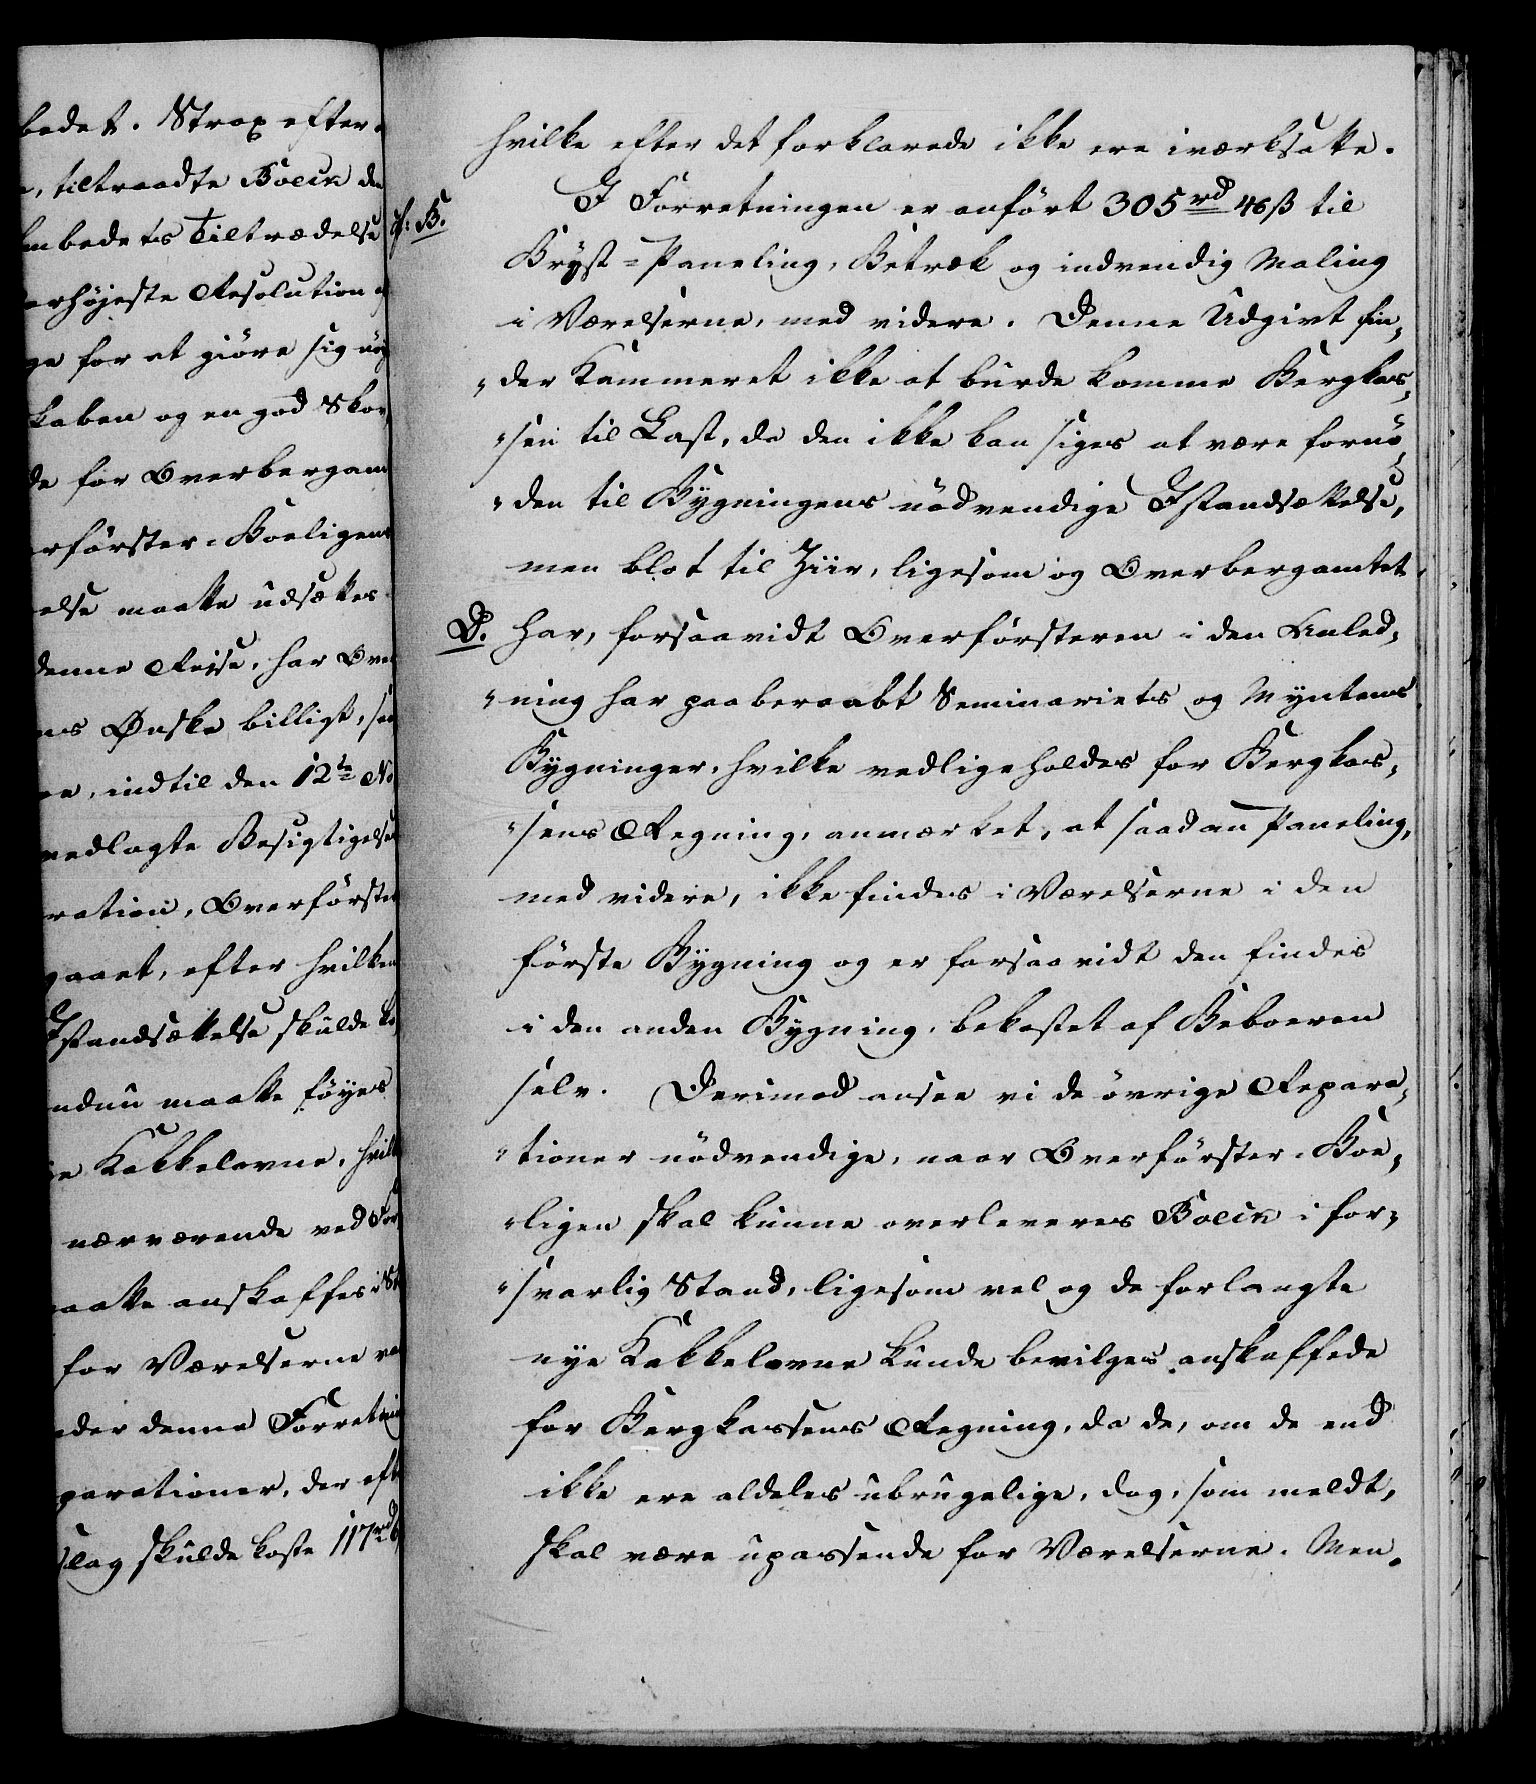 bedet. Strax efter
, tiltraadte Boeck den
mbedets Tiltrædelse
erhöjeste Resolution
ge for at giöre sig
kaben og en god Skov
de for Overbergam
rförster-Boeligens
else maatte udsættes
denne Reise, har Ove
ns Ønske billigt,
en, indtil den 12te No
vedlagte Besigtigelse
ration, Overförste
gaaet, efter hvilken
Istandsættelse skulde ko
ndnu maatte föyes
e Kakkelovne, hvil
nærværende ved For
aatte anskaffes i St
for Værelserne
eder denne Forretnin
parationer, der eft
lag skulde koste 117rd
hvilke efter det forklarede ikke ere iværksatte.
I Forretningen er anfört 305rd 48ß til
B.
Bryst-Paneling, Betræk og indvendig Maling
i Værelserne, med videre. Denne Udgivt fin-
der Kammeret ikke at burde komme Bergkas-
sen til Last, da den ikke kan siges at være fornö-
den til Bygningens nödvendige Istandsættelse,
men blot til Ziir, ligesom og Overbergamtet
D. har, forsaavidt Overförsteren i den Anled-
ning har paaberaabt Seminariets og Myntens
Bygninger, hvilke vedligeholdes for Bergkas-
sens Regning, anmærket, at saadan Paneling,
med videre, ikke findes i Værelserne i den
förste Bygning og er forsaavidt den findes
i den anden Bygning, bekostet af Beboeren
selv. Derimod ansee vi de övrige Repara-
tioner nödvendige, naar Overförster-Boe-
ligen skal kunne overleveres Boeck i for-
svarlig Stand, ligesom vel og de forlangte
nye Kakkelovne kunde bevilges anskaffede
for Bergkassens Regning, da de, om de end
ikke ere aldeles ubrugelige, dog, som meldt,
skal være upassende for Værelserne. Men